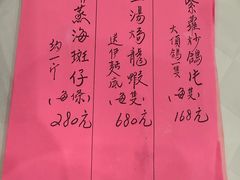 紫蘿炒鴿片
大頂鴿一隻
(每隻)
168元
湯焗龍蝦
送伊麵底
(每隻)
680元
蒸海斑仔
約一斤
(每條)
280元